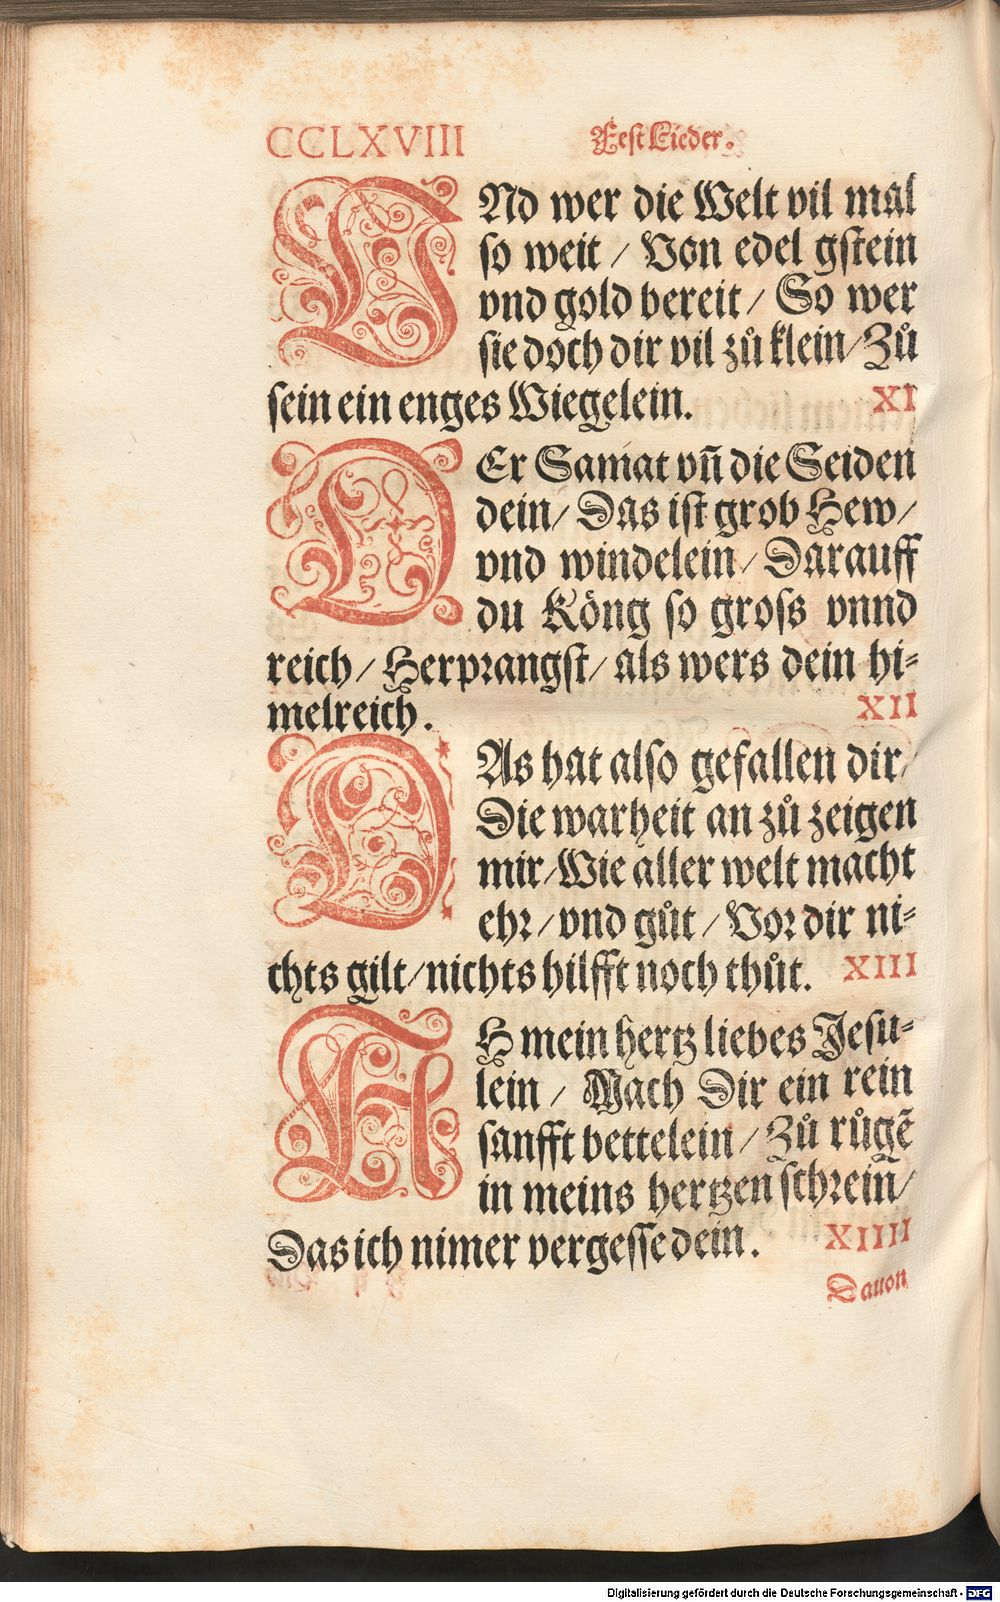 CCLXVIII Fest Lieder.
VNd wer die Welt vil mal
so weit / Von edel gstein
vnd gold bereit / So wer
sie doch dir vil zů klein / Zů
sein ein enges Wiegelein. XI
DEr Samat vñ die Seiden
dein / Das ist grob Hew /
vnd windelein / Darauff
du Köng so gross vnnd
reich / Herprangst / als wers dein hi=
melreich. XII
DAs hat also gefallen dir /
Die warheit an zů zeigen
mir / Wie aller welt macht
ehr / vnd gůt / Vor dir ni=
chts gilt / nichts hilfft noch thůt. XIII
AH mein hertz liebes Jesu=
lein / Mach Dir ein rein
sanfft bettelein / Zů růgẽ
in meins hertzen schrein /
Das ich nimer vergesse dein. XIIII
Dauon
Digitalisierung gefördert durch die Deutsche Forschungsgemeinschaft - DFG